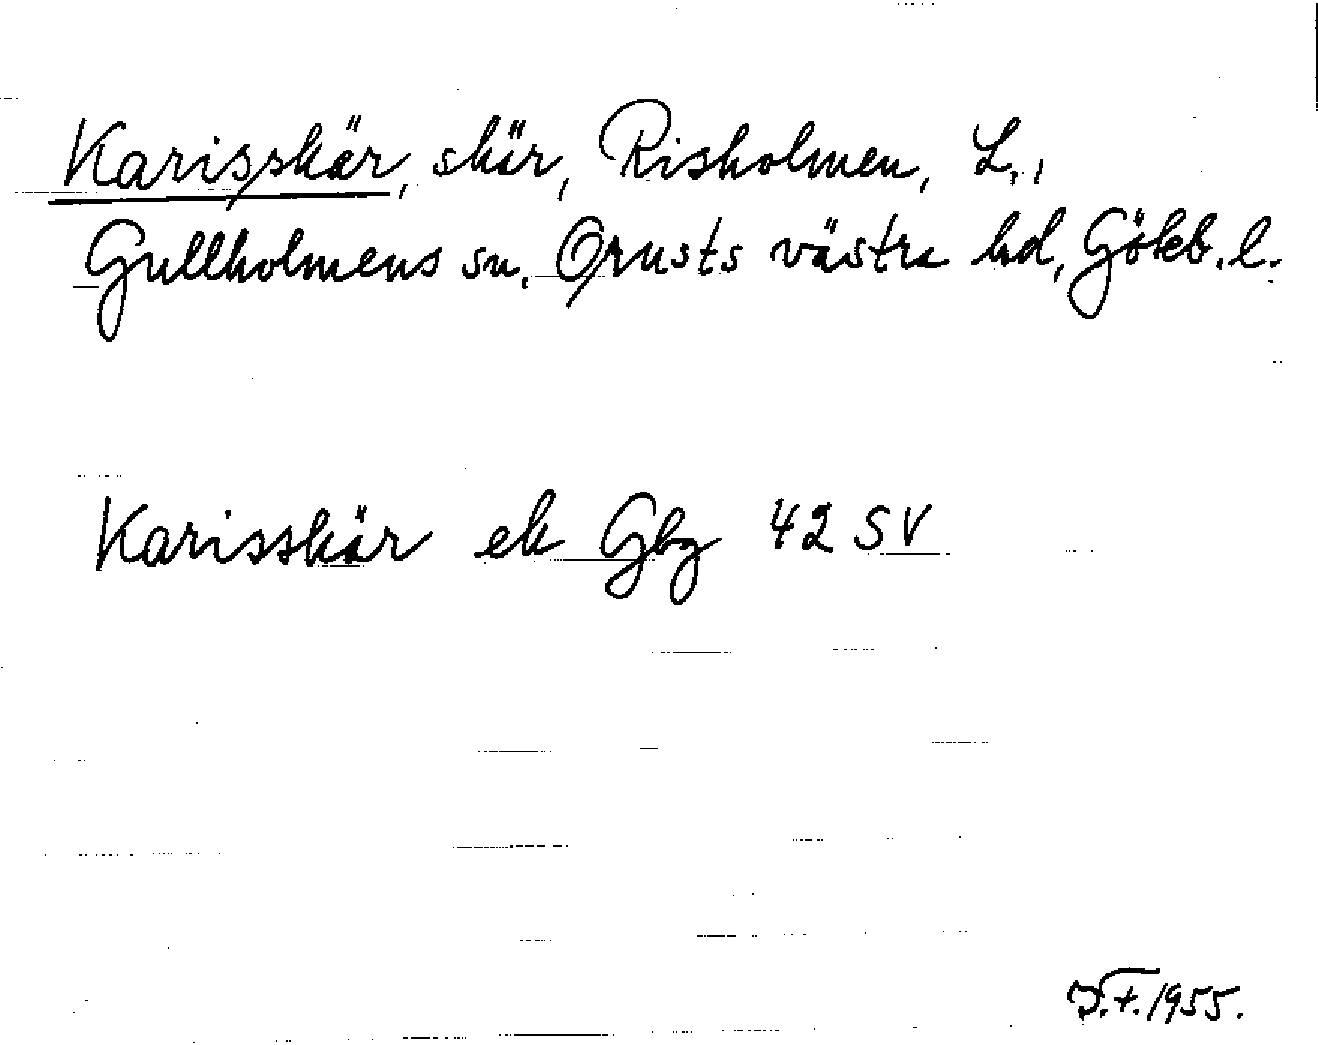 Karisskär, skär, Risholmen, L.,
Gullholmens sn. Orusts västra hd, Göteb. l.
Karisskär ek Gbg 42 SV
D.F. 1955.